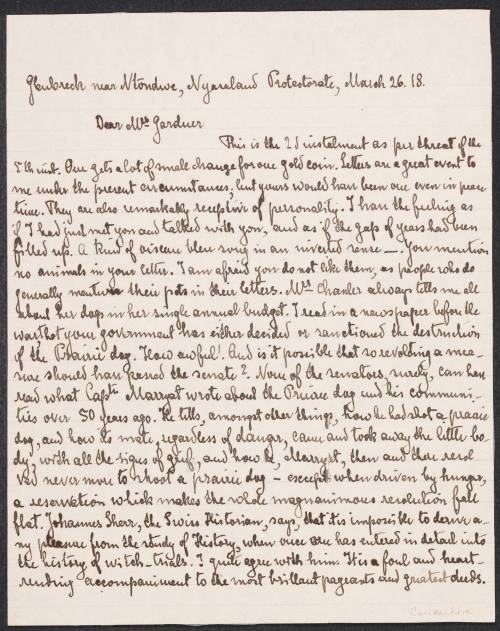 Glenbreck near Ntondwe, Nyasaland Protectorate, March 26. 18.
Dear Mrs. Gardner
This is the 2d instalment as per threat of the
5th inst. One gets a lot of small change for one gold coin. Letters are a great event to
me under the present circumstances, but yours would have been one even in peace
time. They are also remarkably receptive of personality. I have the feeling as
if I had just met you and talked with you, and as if the gap of years had been
filled up. A kind of oiseau bleu song in an inverted sense —. You mention
no animals in your letter. I am afraid you do not like them, as people who do
generally mention their pets in their letters. Mrs. Chanler always tells me all
about her dogs in her single annual budget. I read in a newspaper before the
war that your government has either decided or sanctioned the destruction
of the Prairie dog. How awful! And is it possible that so revolting a mea-
sure should have passed the senate? None of the senators, surely, can have
read what Captn. Maryat wrote about the Prairie dog and his communi-
ties over 50 years ago. He tells, amongst other things, how he had shot a prairie
dog, and how its mate, regardless of danger, came and took away the little bo-
dy, with all the signs of grief, and how he, Marryat, then and there resol
ved never more to shoot a prairie dog - except when driven by hunger,
a reservation which makes the whole magnanimous resolution fall
flat. Johannes Sherr, the Swiss Historian, says, that it is impossible to derive a-
ny pleasure from the study of History, when once one has entered in detail into
the history of witch-trials. I quite agree with him. It is a foul and heart-
rending accompaniment to the most brilliant pageants and greatest deeds.